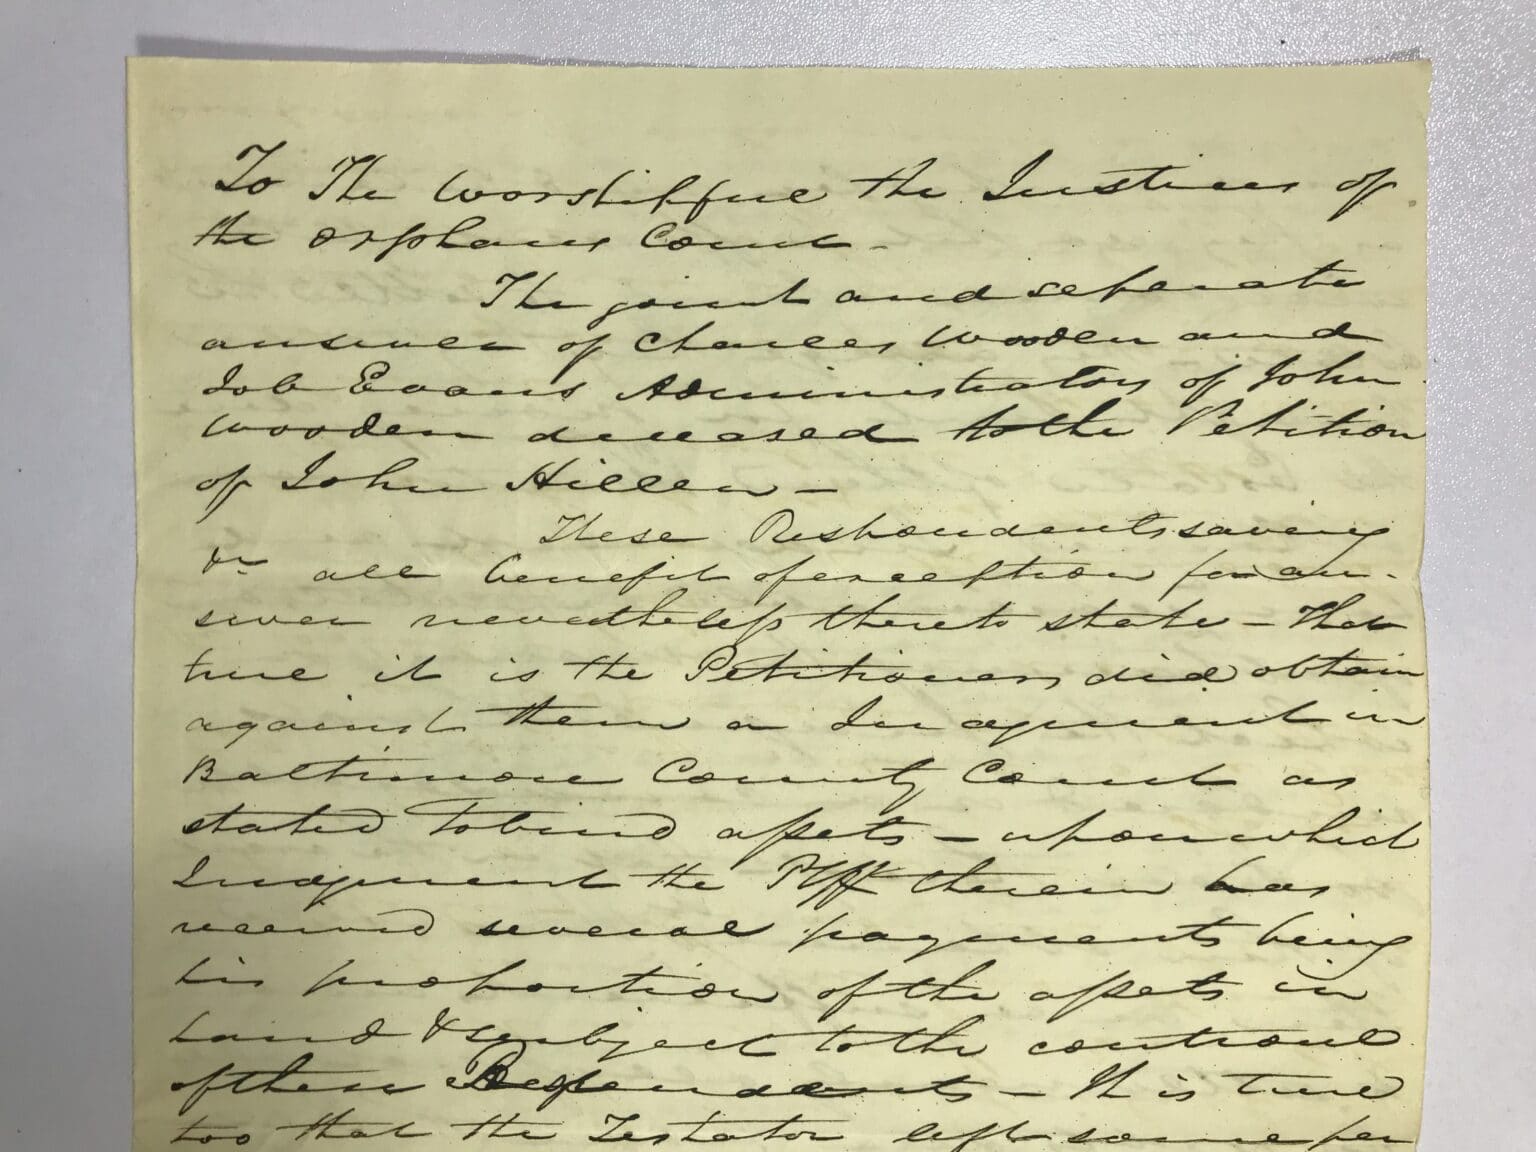 To The Worshipfull the Justices of
the Orphans Court -
The joint and seperate
answer of Charles Wooden and
Job Evans Administrators of John
Wooden deceased to the Petition
of John Hillen -
These Respondents saving
&c all benefit of exception for an-
swer nevertheless thereto state - That
true it is the Petitioners did obtain
against them a Judgment in
Baltimore County Court as
stated to bind assets - upon which
Judgment the Plff therein has
received several payments being
his proportion of the assets in
hand & subject to the controul
of these Respondents - It is true
too that the Testator left some per